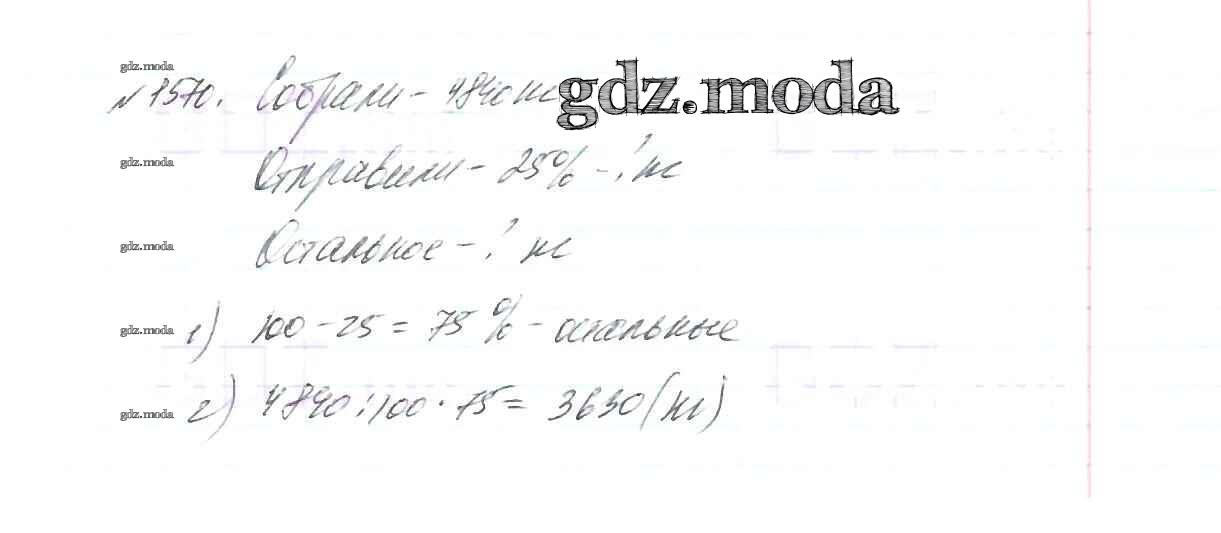 gdz.moda
№1570. Собрали - 4840 кг gdz.moda
gdz.moda
Отправили - 25% - ? кг
gdz.moda
Остальное - ? кг
gdz.moda
1) 100 - 25 = 75% - остальные
gdz.moda
2) 4840 : 100 · 75 = 3630 (кг)